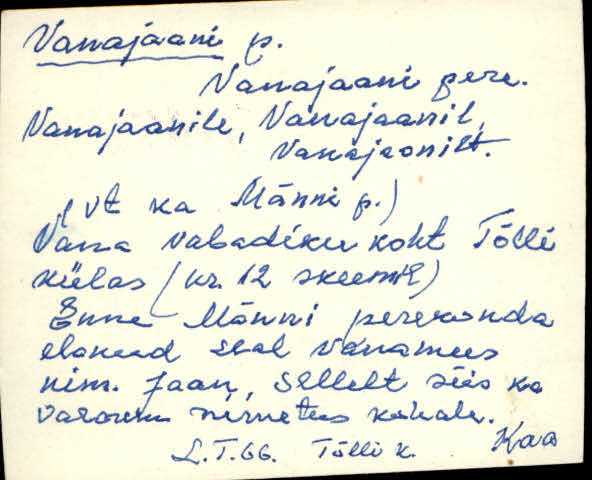 Vanajaani p.
Vanajaani pere.
Vanajaanile, Vanajaanil,
Vanajaanilt.
(vt ka Männi p.)
Vana vabadiku koht Tõlli
külas (nr. 12 skeemil)
Enne Männi perekonda
elanud seal vanamees
nim. Jaan, sellelt siis ka
varasem nimetus kohale.
L.T.66. Tõlli k. Kaa